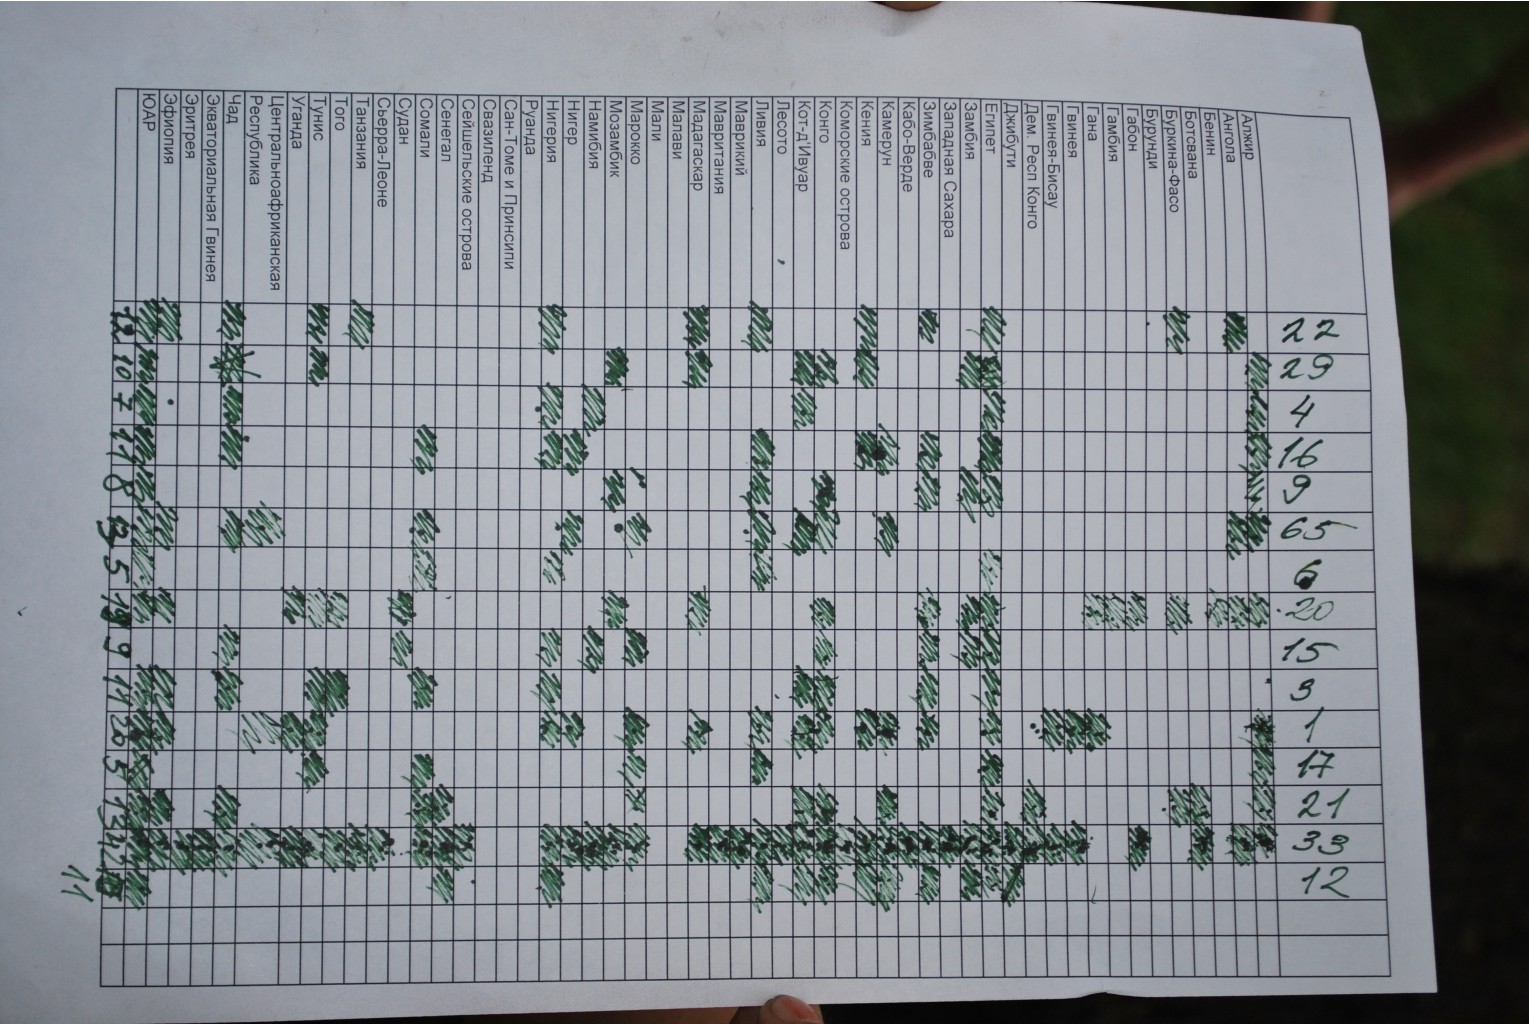 22
29
4
16
9
65
6
20
15
3
1
17
21
33
12
Алжир
Ангола
Бенин
Ботсвана
Буркина-Фасо
Бурунди
Габон
Гамбия
Гана
Гвинея
Гвинея-Бисау
Дем. Респ Конго
Джибути
Египет
Замбия
Западная Сахара
Зимбабве
Кабо-Верде
Камерун
Кения
Коморские острова
Конго
Кот-д'Ивуар
Лесото
Ливия
Маврикий
Мавритания
Мадагаскар
Малави
Мали
Марокко
Мозамбик
Намибия
Нигер
Нигерия
Руанда
Сан-Томе и Принсипи
Свазиленд
Сейшельские острова
Сенегал
Сомали
Судан
Сьерра-Леоне
Танзания
Того
Тунис
Уганда
Центральноафриканская
Республика
Чад
Экваториальная Гвинея
Эритрея
Эфиопия
ЮАР
10
7
11
8
5
9
11
20
5
13
11